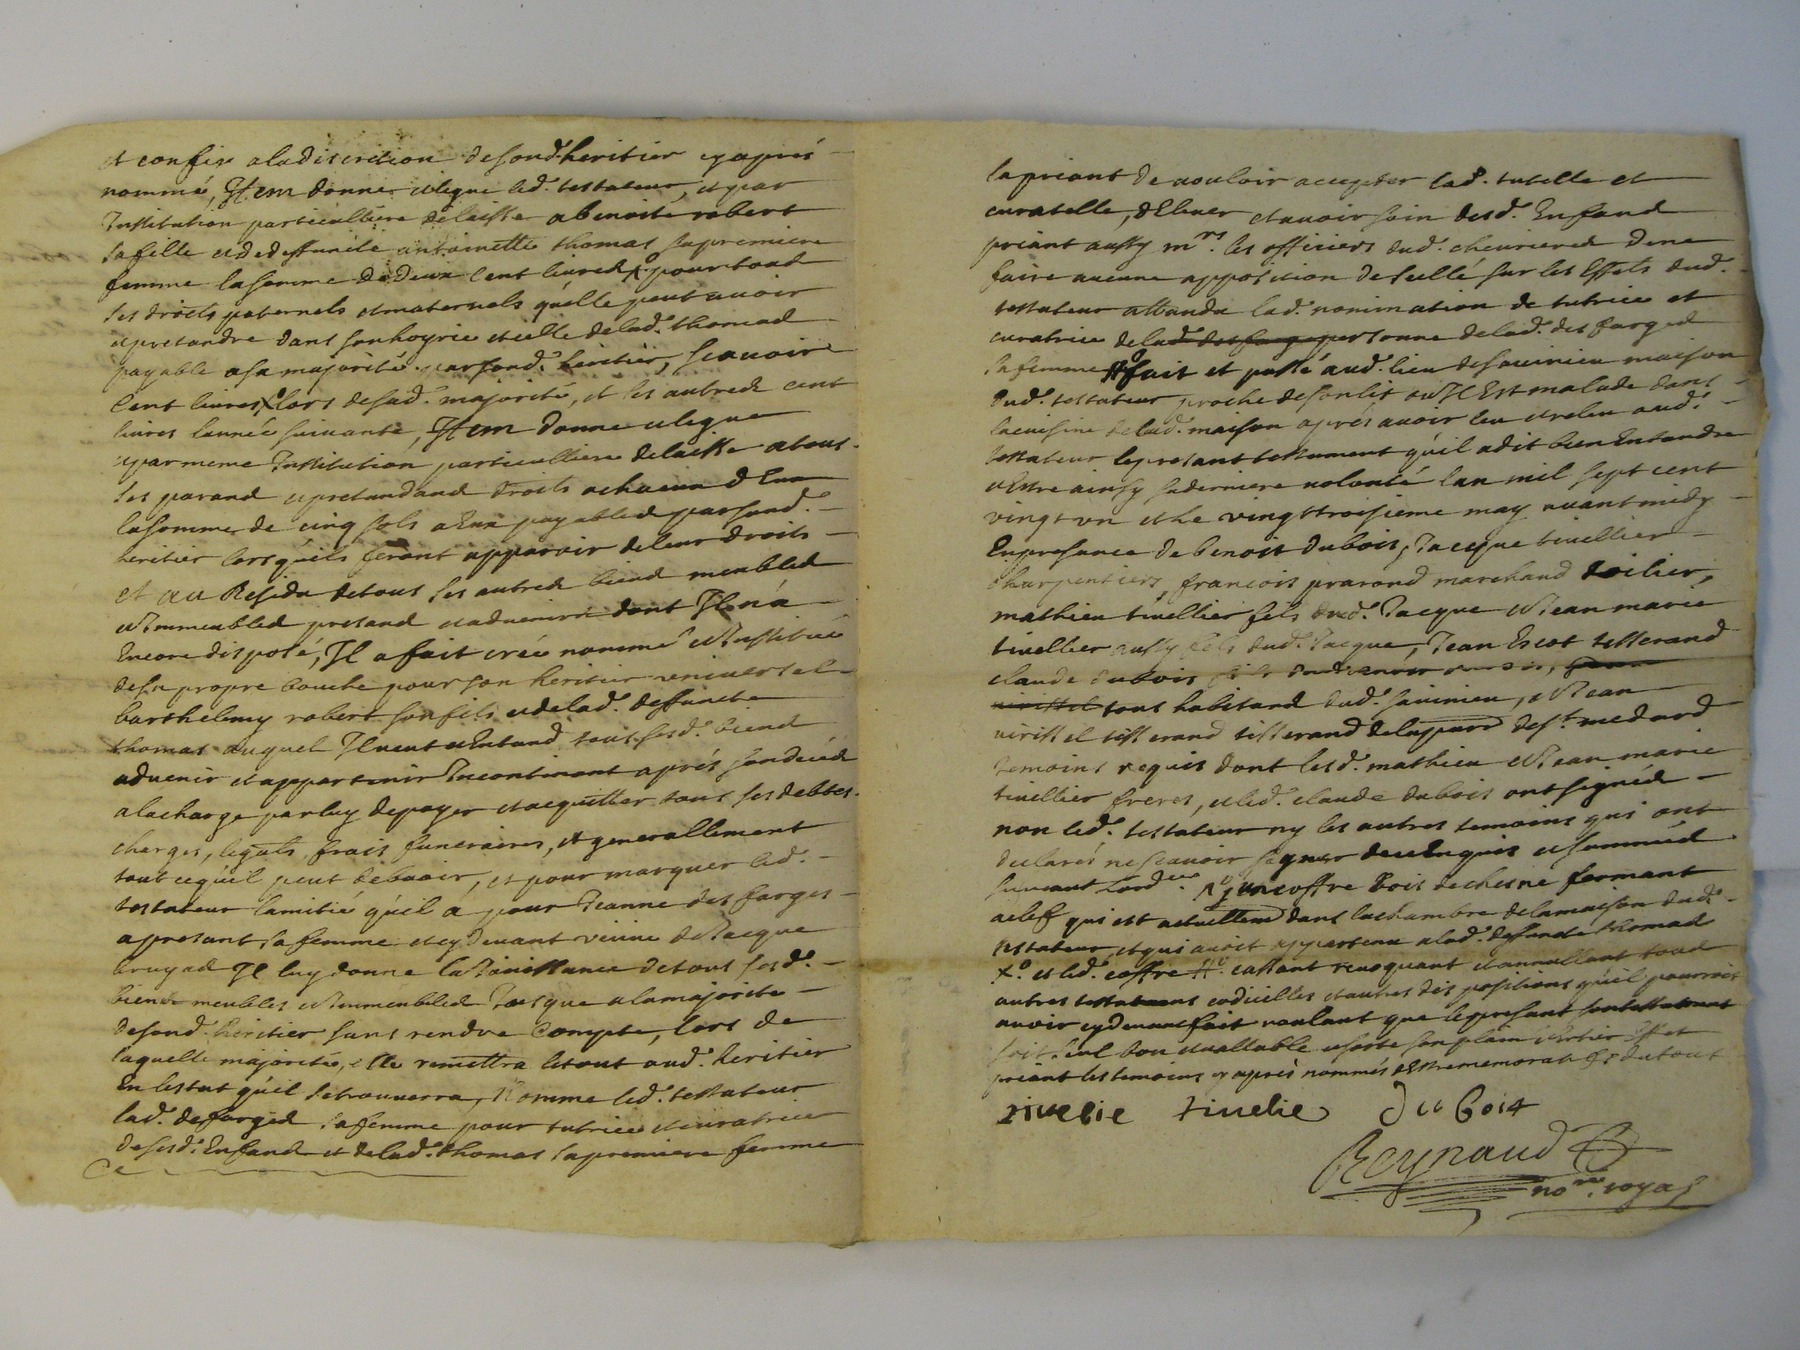 et confie a la discretion de sond. heritier cy apres
nommé, Item donne et legue led. testateur, et par
Institution particulliere delaisse a benoite robert
sa fille et de deffuncte antoinette thomas sa premiere
femme la somme de Deux Cent livres X° pour tous
ses droits paternels et maternels qu'elle peut avoir
et pretandre dans son hoyrie et celle de lad. thomas
payable a sa majorité par sond. heritier, scavoir
Cent livres X° lors de sad. majorité, et les autres cent
livres l'année suivante, Item donne et legue
et par meme Institution particulliere delaisse a tous
ses parans et pretandans droits a chacun d'Eux
la somme de cinq sols a Eux payables par sond.
heritier lorsqu'ils feront apparoir de leur droits
et au Residu de tous ses autres biens meubles
et Immeubles presans et advenirs dont Il n'a
Encore disposé, Il a fait créé nommé et Institué
de sa propre bouche pour son heritier universel
barthelemy robert son fils et de lad. deffuncte
thomas auquel Il veut et Entend tous sesd. biens
advenir et appartenir Incontinent aprés son decés
a la charge par luy de payer et acquitter tous ses debtes
charges, legats, frais funeraires, et generallement
tout ce qu'il peut debvoir, et pour marquer led.
testateur l'amitié qu'il a pour Jeanne des farges
a presant sa femme et cy devant veuve de Jacque
bruyas Il luy donne la Jouissance de tous sesd.
biens meubles et Immeubles Jusque a la majorité
de sond. heritier sans rendre Compte, lors de
laquelle majorité, elle remettra le tout aud. heritier
En l'estat qu'il se trouverra, Nomme led. testateur
lad. desfarges sa femme pour tutrice et curatrice
de sesd. Enfans et de lad. thomas sa premiere femme
la priant de vouloir accepter lad. tutelle et
curatelle, d'Elever et avoir soin desd. Enfans
priant aussy mrs. les officiers dud. chevrieres de ne
faire aucune apposition de scellé sur les Effets dud.
testateur attandu lad. nomination de tutrice et
curatrice de lad. des farge personne de lad. des farges
sa femme #° fait et passé aud. lieu de savinieu maison
dud. testateur proche de son lit ou Il Est malade dans
la cuisine de lad. maison aprés avoir leu et releu aud.
testateur le presant testament qu'il a dit bien Entandre
et Estre ainsy sa derniere volonté l'an mil sept cent
vingt un et le vingt troisieme may avant midy
En presance de benoit dubois, Jacque tivellier
charpentiers, francois prarond marchand toilier,
mathieu tivellier fils dud. Jacque et Jean marie
tivellier aussy fils dud. Jacque, Jean Escot tisserand
claude dubois
tous habitans dud. savinieu, et Jean
virissel tisserand tisserand de la parr. de st. medard
temoins requis dont lesd. mathieu et Jean marie
tivellier freres, et led. claude dubois ont signés
non led. testateur ny les autres temoins qui ont
declarés ne scavoir signer de ce Enquis et sommés
suivant l'ord.ce X° un coffre bois de chesne fermant
a clef qui est actuellem. dans la chambre de la maison dud.
testateur, et qui avoit appartenu a lad. deffuncte thomas
X° et led. coffre #° cassant revoquant et annullant tous
autres testamens codicilles et autres dispositions qu'il pourroit
avoir cy devant fait voulant que le presant son testament
soit seul bon et vallable et sorte son plain et Entier Effet
priant les temoins cy aprés nommés d'Estre memoratifs du tout
tivelie tivelie Dubois
Reynaud
nore. royal